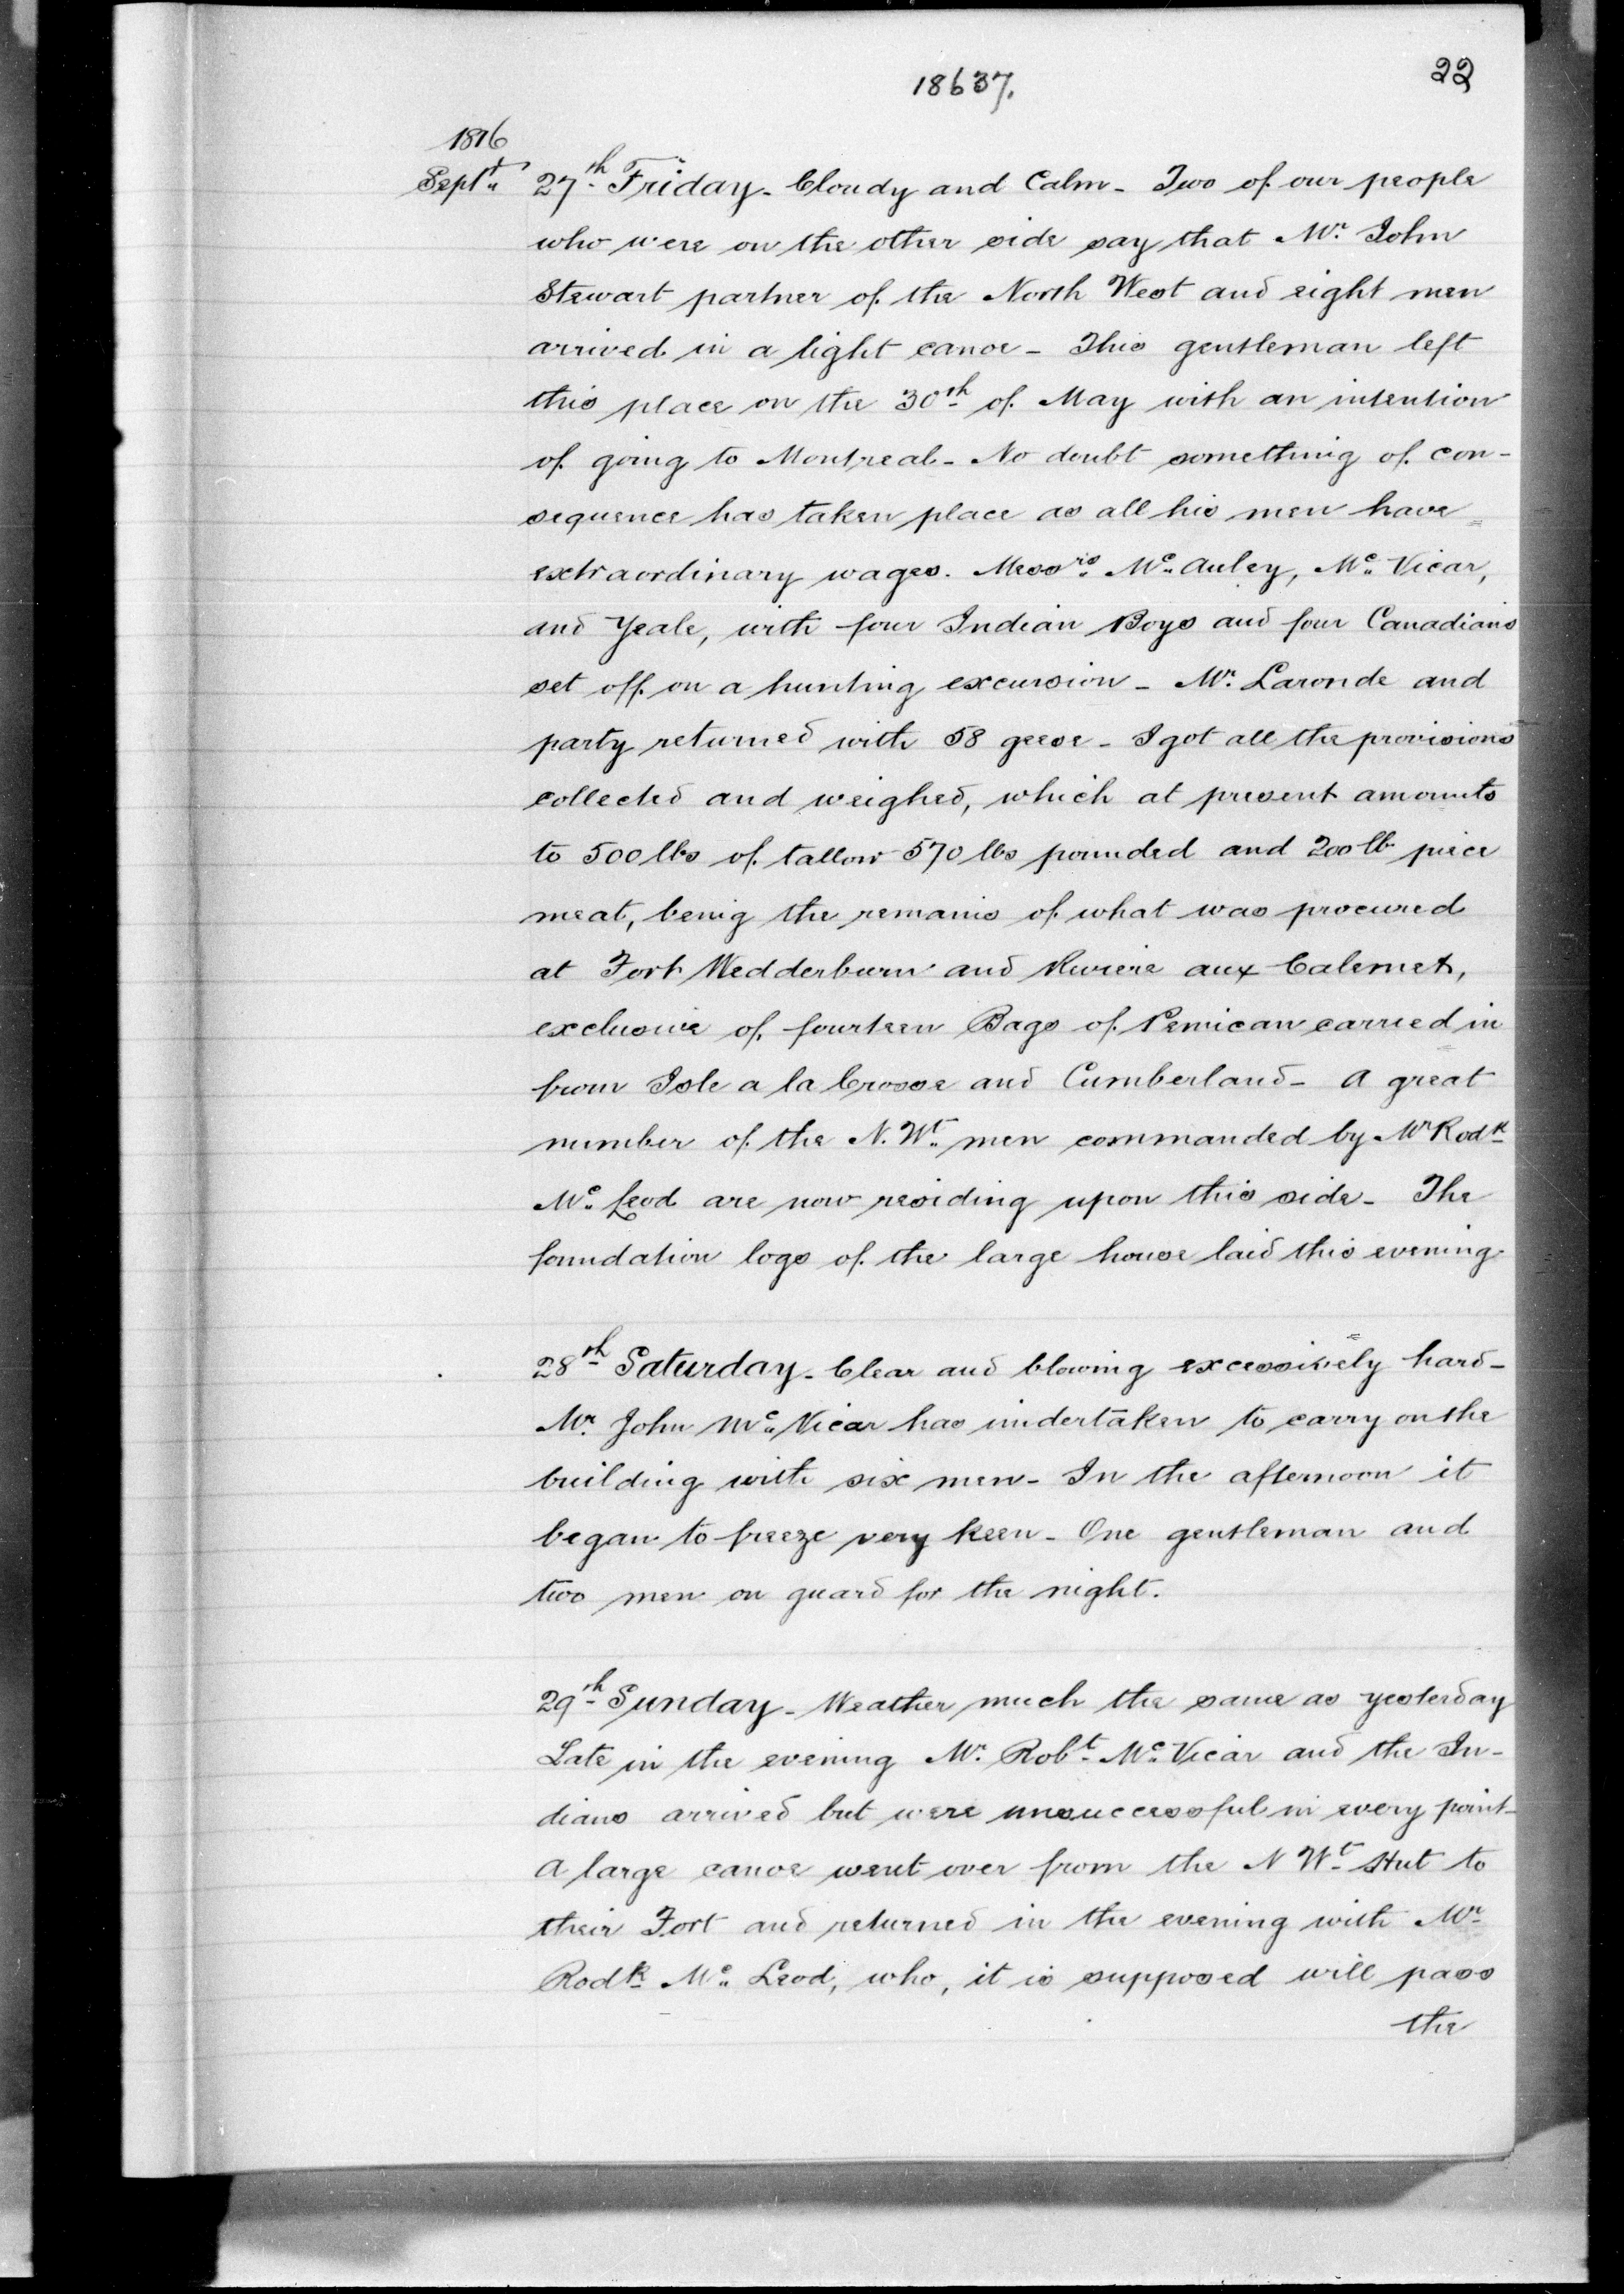 18637.
22
1816
Septr 27th Friday - Cloudy and Calm - Two of our people
who were on the other side say that Mr. John
Stewart partner of the North West and eight men
arrived in a light canoe - This gentleman left
this place on the 30th of May with an intention
of going to Montreal - No doubt something of con-
sequence has taken place as all his men have
extraordinary wages. Messrs McAuley, McVicar,
and Yeale, with four Indian Boys and four Canadians
set off on a hunting excursion - Mr. Laronde and
party returned with 58 geese - I got all the provisions
collected and weighed, which at present amounts
to 500 lbs of tallow 570 lbs pounded and 200 lb piece
meat, being the remains of what was procured
at Fort Wedderburn and Riviere aux Calemet,
exclusive of fourteen Bags of Pemican carried in
from Isle a la Crosse and Cumberland - A great
number of the N. Wt. men commanded by Mr Rodk
Mc Leod are now residing upon this side - The
foundation logs of the large house laid this evening
28th Saturday - Clear and blowing excessively hard -
Mr. John McVicar has undertaken to carry on the
building with six men - In the afternoon it
began to freeze very keen - One gentleman and
two men on guard for the night.
29th Sunday - Weather much the same as yesterday
Late in the evening Mr. Robt McVicar and the In-
dians arrived but were unsuccessful in every point -
A large canoe went over from the N Wt Hut to
their Fort and returned in the evening with Mr
Rodk Mc Leod, who, it is supposed will pass
the